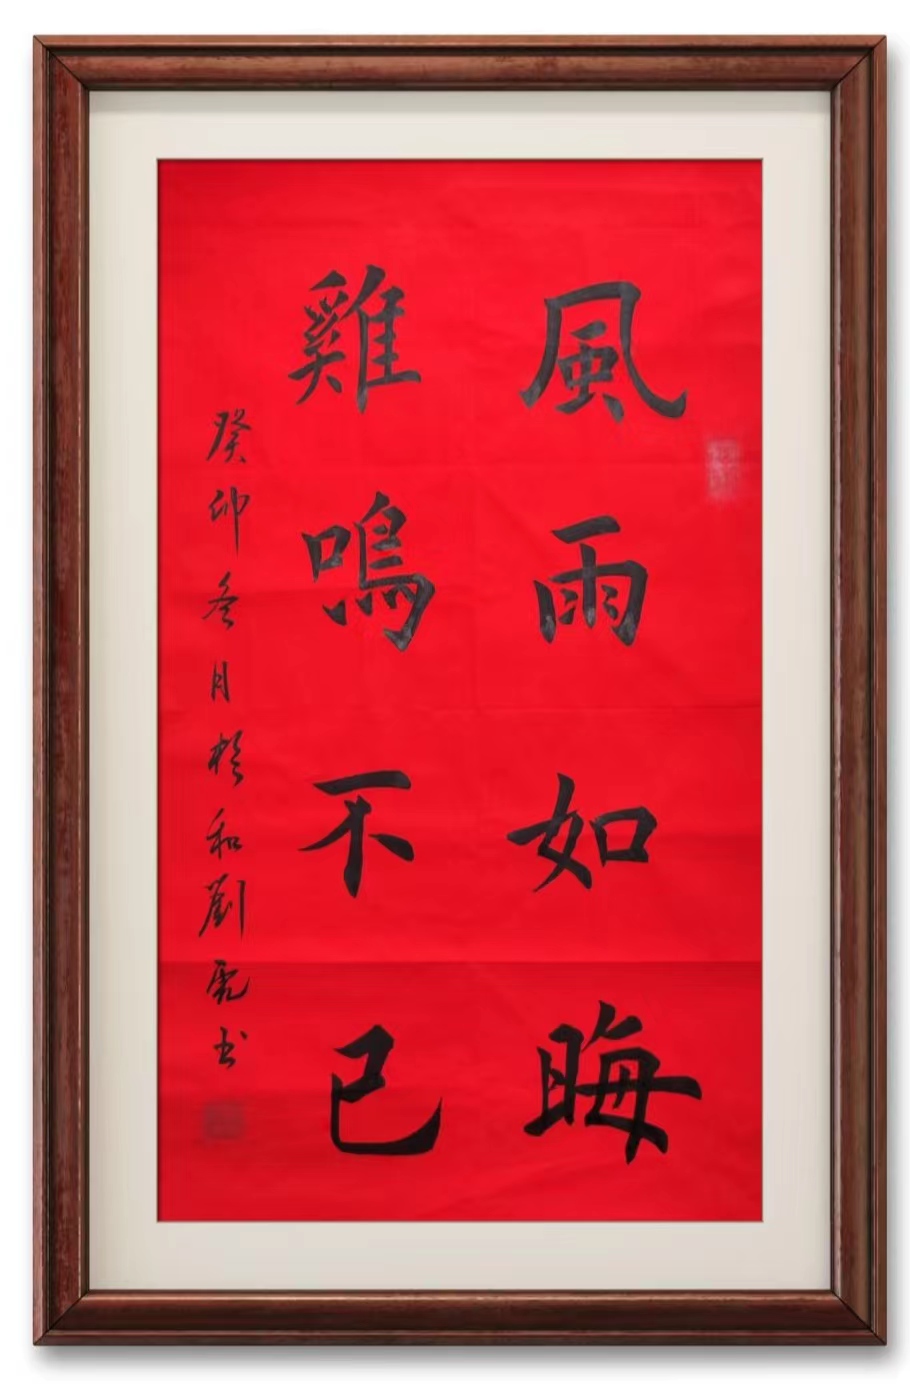 風雨如晦
雞鳴不已
癸卯冬月於和劉亮书